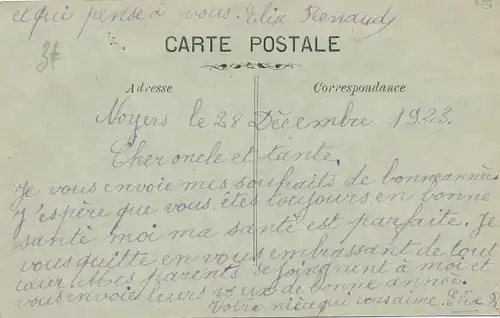 et qui pense à vous. Elix Renaud
CARTE POSTALE
Adresse
Correspondance
Noyers le 28 Décembre 1923.
Cher oncle et tante,
Je vous envoie mes souhaits de bonne année
J'espère que vous êtes toujours en bonne
santé moi ma santé est parfaite. Je
vous quitte en vous embrassant de tout
cœur. Mes parents se joignent à moi et
vous envoie leurs veux de bonne année.
Votre nièce qui vous aime.